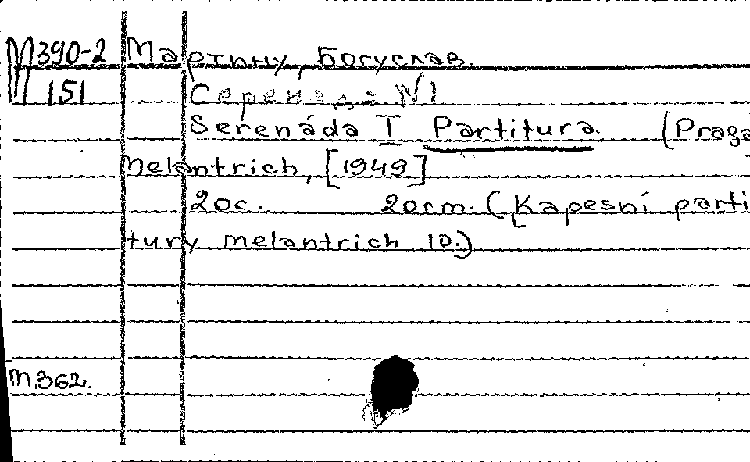 М390-2 Мартину, Богуслав.
151 Серенада №1
Serenáda I Partitura. (Praga
Melantrich, [1949]
20c. 20cm. (Kapesní parti
tury melantrich 10.)
М362.